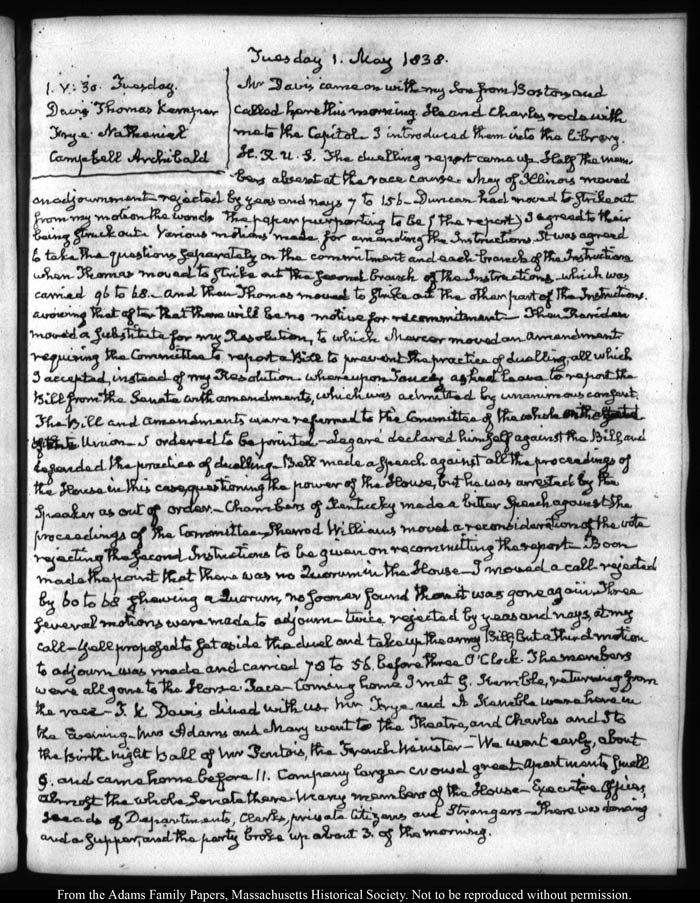 Tuesday 1. May 1838.
1. V:30. Tuesday.
Davis Thomas Kemper
Frye. Nathaniel
Campbell Archibald
Mr Davis came on with my Son from Boston and
called here this morning. He and Charles rode with
me to the Capitol. I introduced them into the library.
H. R. U. S. The duelling report came up. Half the mem-
bers absent at the race course. May of Illinois moved
an adjournment rejected by yeas and nays 7 to 156. Duncan had moved to strike out
from my motion the words the paper purporting to be (the report) I agreed to their
being struck out. Various motions made for amending the Instructions. It was agreed
to take the questions separately on the commitment and each branch of the Instructions
when Thomas moved to strike out the second branch of the Instructions which was
carried 96 to 68. And then Thomas moved to strike out the other part of the Instructions.
avowing that after that there will be no motive for recommitment. Then Rariden
moved a substitute for my Resolution, to which Mercer moved an amendment
requiring the Committee to report a Bill to prevent the practice of duelling, all which
I accepted, instead of my Resolution whereupon Toucey asked leave to report the
Bill from the Senate with amendments, which was admitted by unanimous consent.
The Bill and amendments were referred to the Committee of the whole on the State
of the Union. & ordered to be printed. Legare declared himself against the Bill and
defended the practice of duelling. Bell made a speech against all the proceedings of
the House in this case, questioning the power of the House, but he was arrested by the
Speaker as out of order. Chambers of Kentucky made a bitter Speech against the
proceedings of the Committee. Sherrod Williams moved a reconsideration of the vote
rejecting the second Instructions to be given on recommitting the report. Boon
made the point that there was no Quorum in the House. I moved a call. rejected
by 60 to 68 shewing a Quorum, no sooner found than it was gone again. Three
several motions were made to adjourn. twice rejected by yeas and nays, at my
call. Yell proposed to set aside the duel and take up the army Bill; but a third motion
to adjourn was made and carried 78 to 56. before three O'Clock. The members
were all gone to the Horse Race. Coming home I met G. Kemble, returning from
the race. T. K. Davis dined with us. Mr Frye and Kemble were here in
the Evening. Mrs Adams and Mary went to the Theatre, and Charles and I to
the Birth night Ball of Mr Pontois, the French Minister. We went early, about
9. and came home before 11. Company large. crowd great. Apartments small
almost the whole Senate there. Many members of the House. Executive Officers,
Heads of Departments, Clerks, private Citizens and Strangers. There was dancing
and a supper, and the party broke up about 3. of the morning.
From the Adams Family Papers, Massachusetts Historical Society. Not to be reproduced without permission.